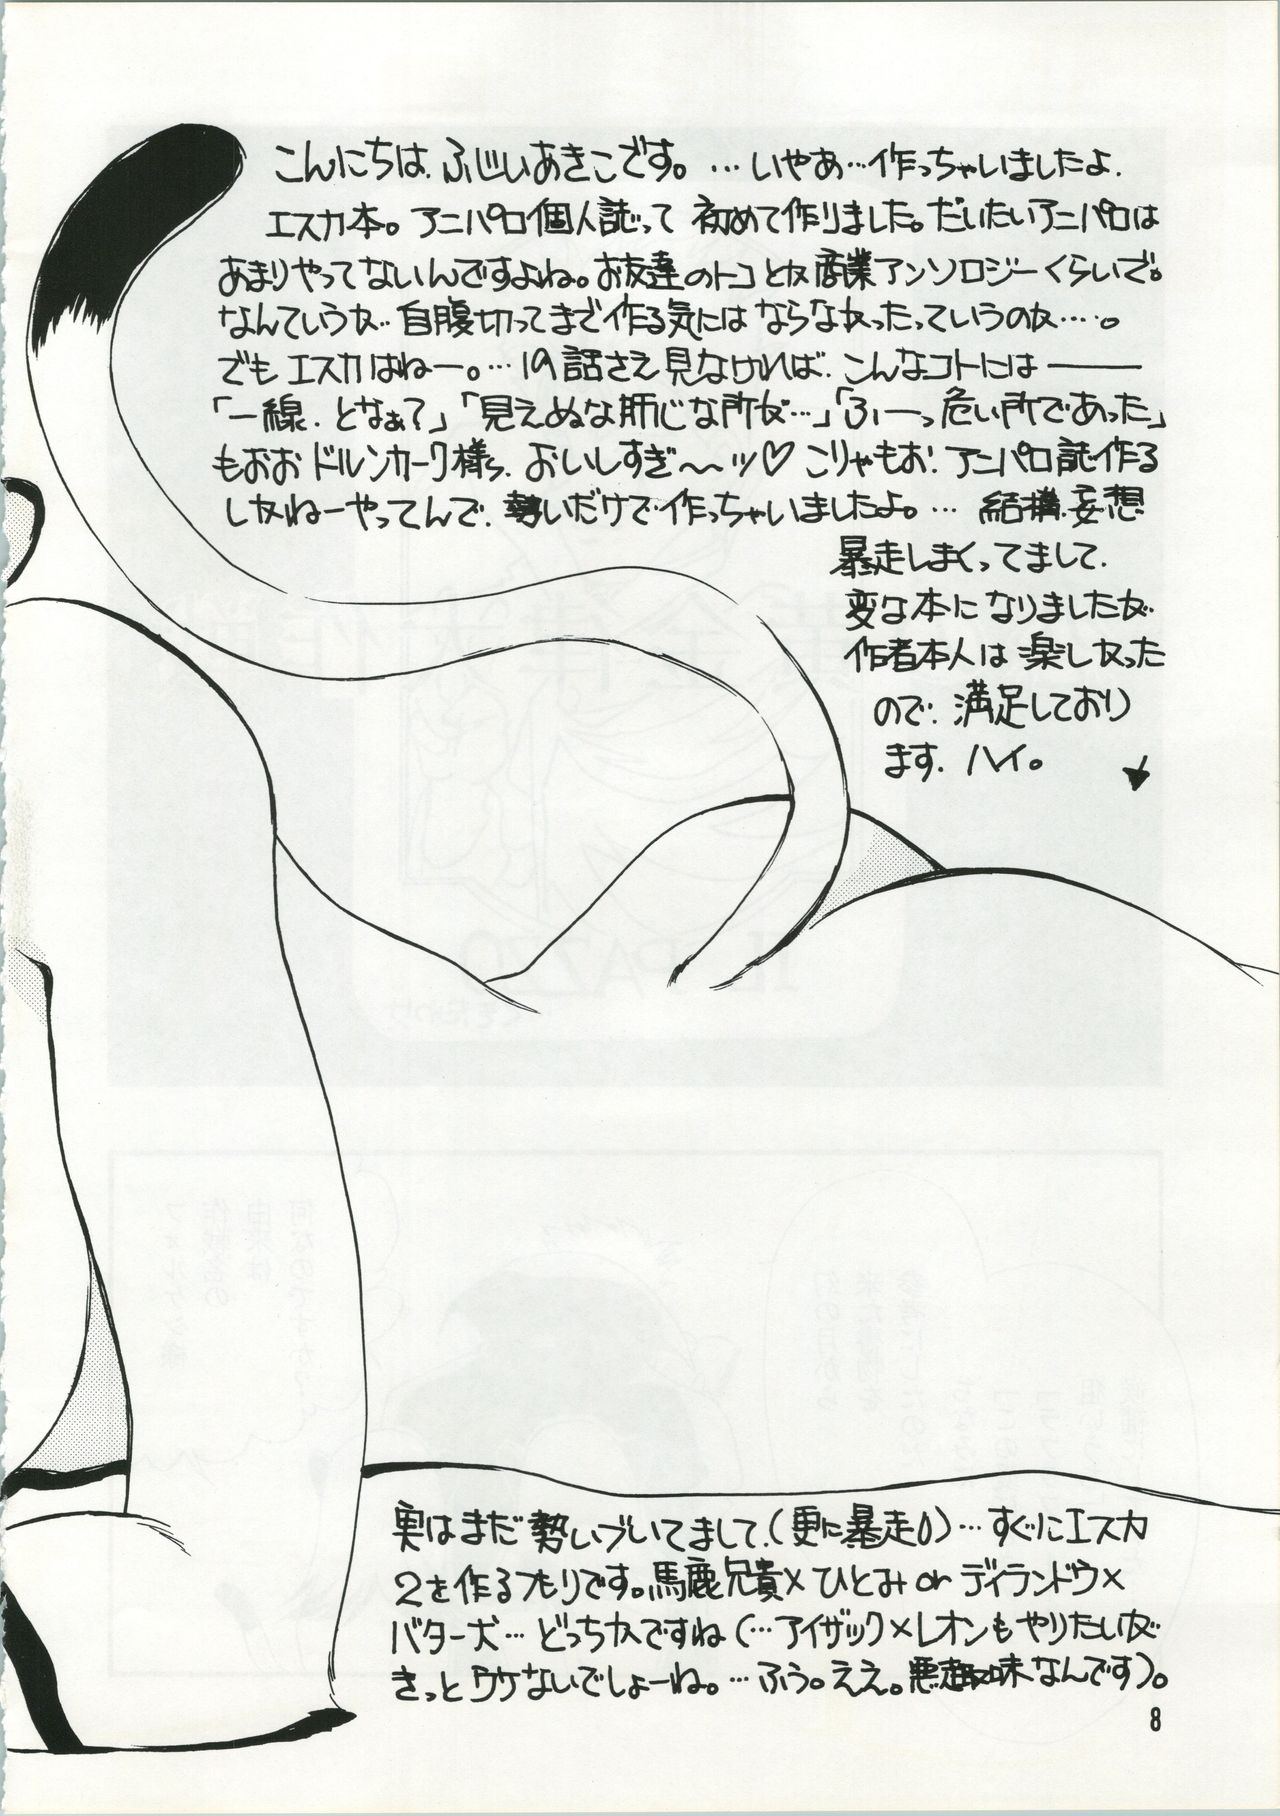 こんにちは、ふじいあきこです。…いやあ…作っちゃいましたよ、
エスカ本。アニパロ個人誌って 初めて作りました。だいたいアニパロは
あまりやってないんですよね。お友達のトコとか商業アンソロジーくらいで。
なんていうか…自腹切ってまで作る気にはならなかったっていうのか…。
でも エスカはねー。…19話さえ見なければ、こんなコトには――
「一線、となぁ?」「見えぬな肝じな所が…」「ふーっ危い所であった」
もおお ドルンカーク様っ、おいしすぎ～～ッ♡ こりゃもお、アニパロ誌作る
しかねーやってんで、勢いだけで作っちゃいましたよ。… 結構、妄想
暴走しまくってまして、
変な本になりましたが
作者本人は 楽しかった
ので、満足しており
ます、ハイ。
実はまだ勢いづいてまして、(更に暴走0)…すぐにエスカ
2を作るつもりです。馬鹿兄貴×ひとみ or ディランドウ×
バター犬… どっちかですね (…アイザック×レオンもやりたいが
きっとウケないでしょーね。…ふう。ええ。悪趣味なんです)。
8